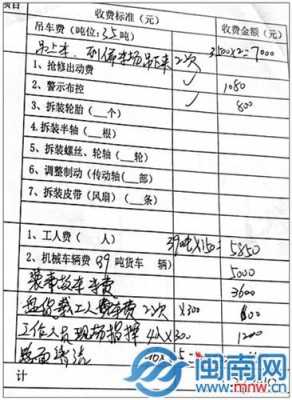 项目 收费标准（元） 收费金额（元）
吊车费（吨位: 35吨）
吊上车、到停车场吊下来 2次 3500×2=7000
1、抢修出动费 ✓ 1080
2、警示布控 ✓ 800
3、拆装轮胎（___个）
4、拆装半轴（___根）
5、拆装螺丝、轮轴（___轮）
6、调整制动（传动轴（___部）
7、拆装皮带（风扇）（___条）
1、工人费（ 人） 39吨×150= 5850
2、机械车辆费 39吨货车 辆） 5000
装卸 费 3600
2次 ×300 600
工作人员现场指挥 4人×300 1200
路面清洗
计
闽南网
www.mnw.cn